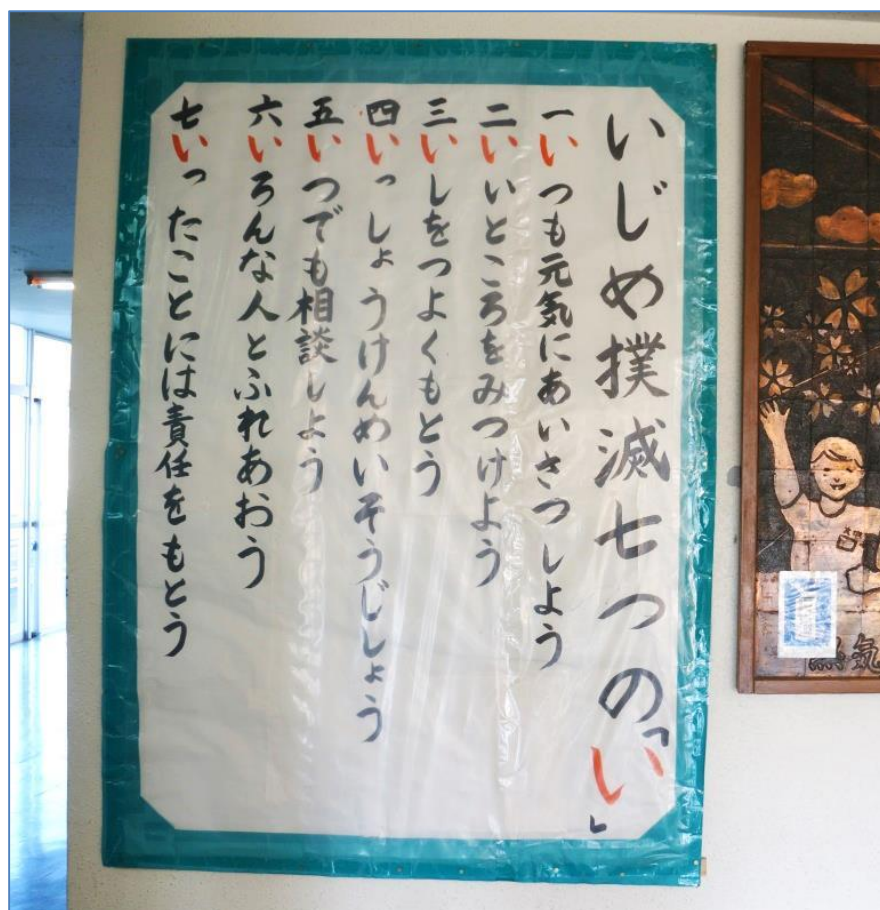 いじめ撲滅七つの「い」
一いつも元気にあいさつしよう
二いいところをみつけよう
三いしをつよくもとう
四いっしょうけんめいそうじしょう
五いつでも相談しよう
六いろんな人とふれあおう
七いったことには責任をもとう